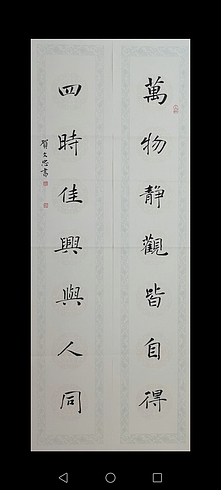 萬物靜觀皆自得
四時佳興與人同
賀文忠書